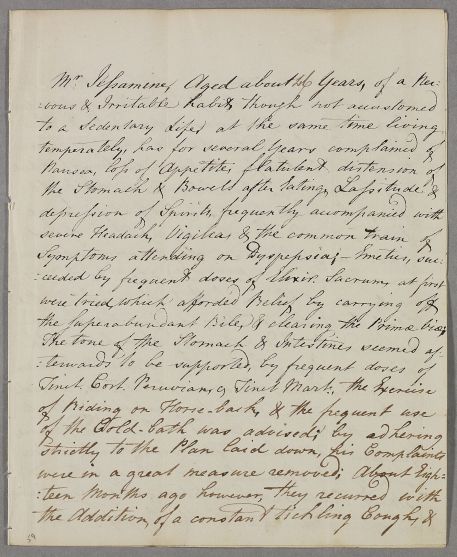 Mr. Jessamine, Aged about 46 Years, of a Ner-
:vous & Irritable habit, though not accustomed
to a Sedentary Life, at the same time living
temperately, has for several Years complained of
Nausea, loss of Appetite, flatulent distension of
the Stomach & Bowels after Eating, Lassitude &
depression of Spirits, frequently accompanied with
severe Headach, Vigileas & the common train of
Symptoms attending on Dyspepsia; – Emetics, suc-
:ceeded by frequent doses of Elixir. Sacrum, at first
were tried, which afforded Relief by carrying off
the superabundant Bile, & clearing the Primæ Viæ;
The tone of the Stomach & Intestines seemed af-
:terwards to be supported, by frequent doses of
Tinct. Cort. Peruvian, c Tinct. Mart., the Exercise
of Riding on Horse-back, & the frequent use
of the Cold-bath was advised; by adhering
strictly to the Plan laid down, his Complaints
were in a great measure removed; About Eigh-
:teen Months ago however, they recurred with
the Addition, of a constant tickling Cough, &
59